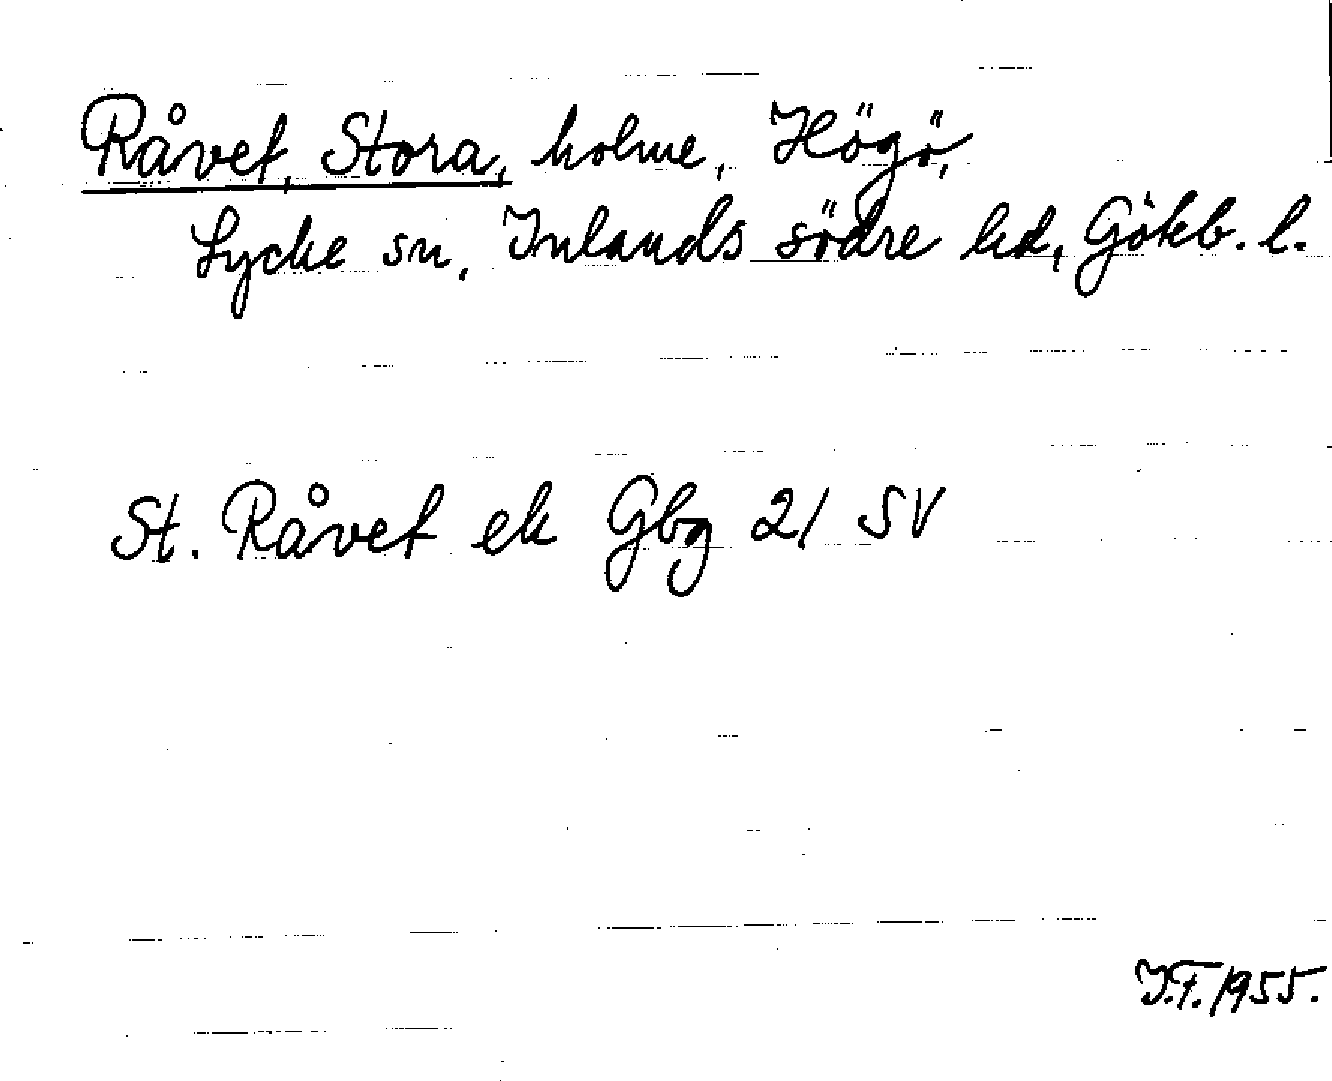 Råvet, Stora, holme, Högö,
Lycke sn, Inlands södre hd, Götb. l.
St. Råvet ek Gbg 21 SV
I.F. 1955.